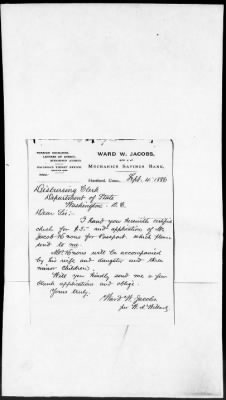 FOREIGN EXCHANGE,
LETTERS OF CREDIT,
WARD W. JACOBS,
MECHANICS SAVINGS BANK,
Hartford, Conn., Sept. 4. 1886
Disbursing Clerk
Department of State
Washington. D.C.
Dear Sir:-
I hand you herewith certified
check for $5.- and application of Mr.
Jacob for Passport, which please
send to me.
Mr. will be accompanied
by his wife and daughter and three
minor children.
Will you kindly send me a few
blank applications and oblige.
Yours truly,
Ward W. Jacobs
per W. A.